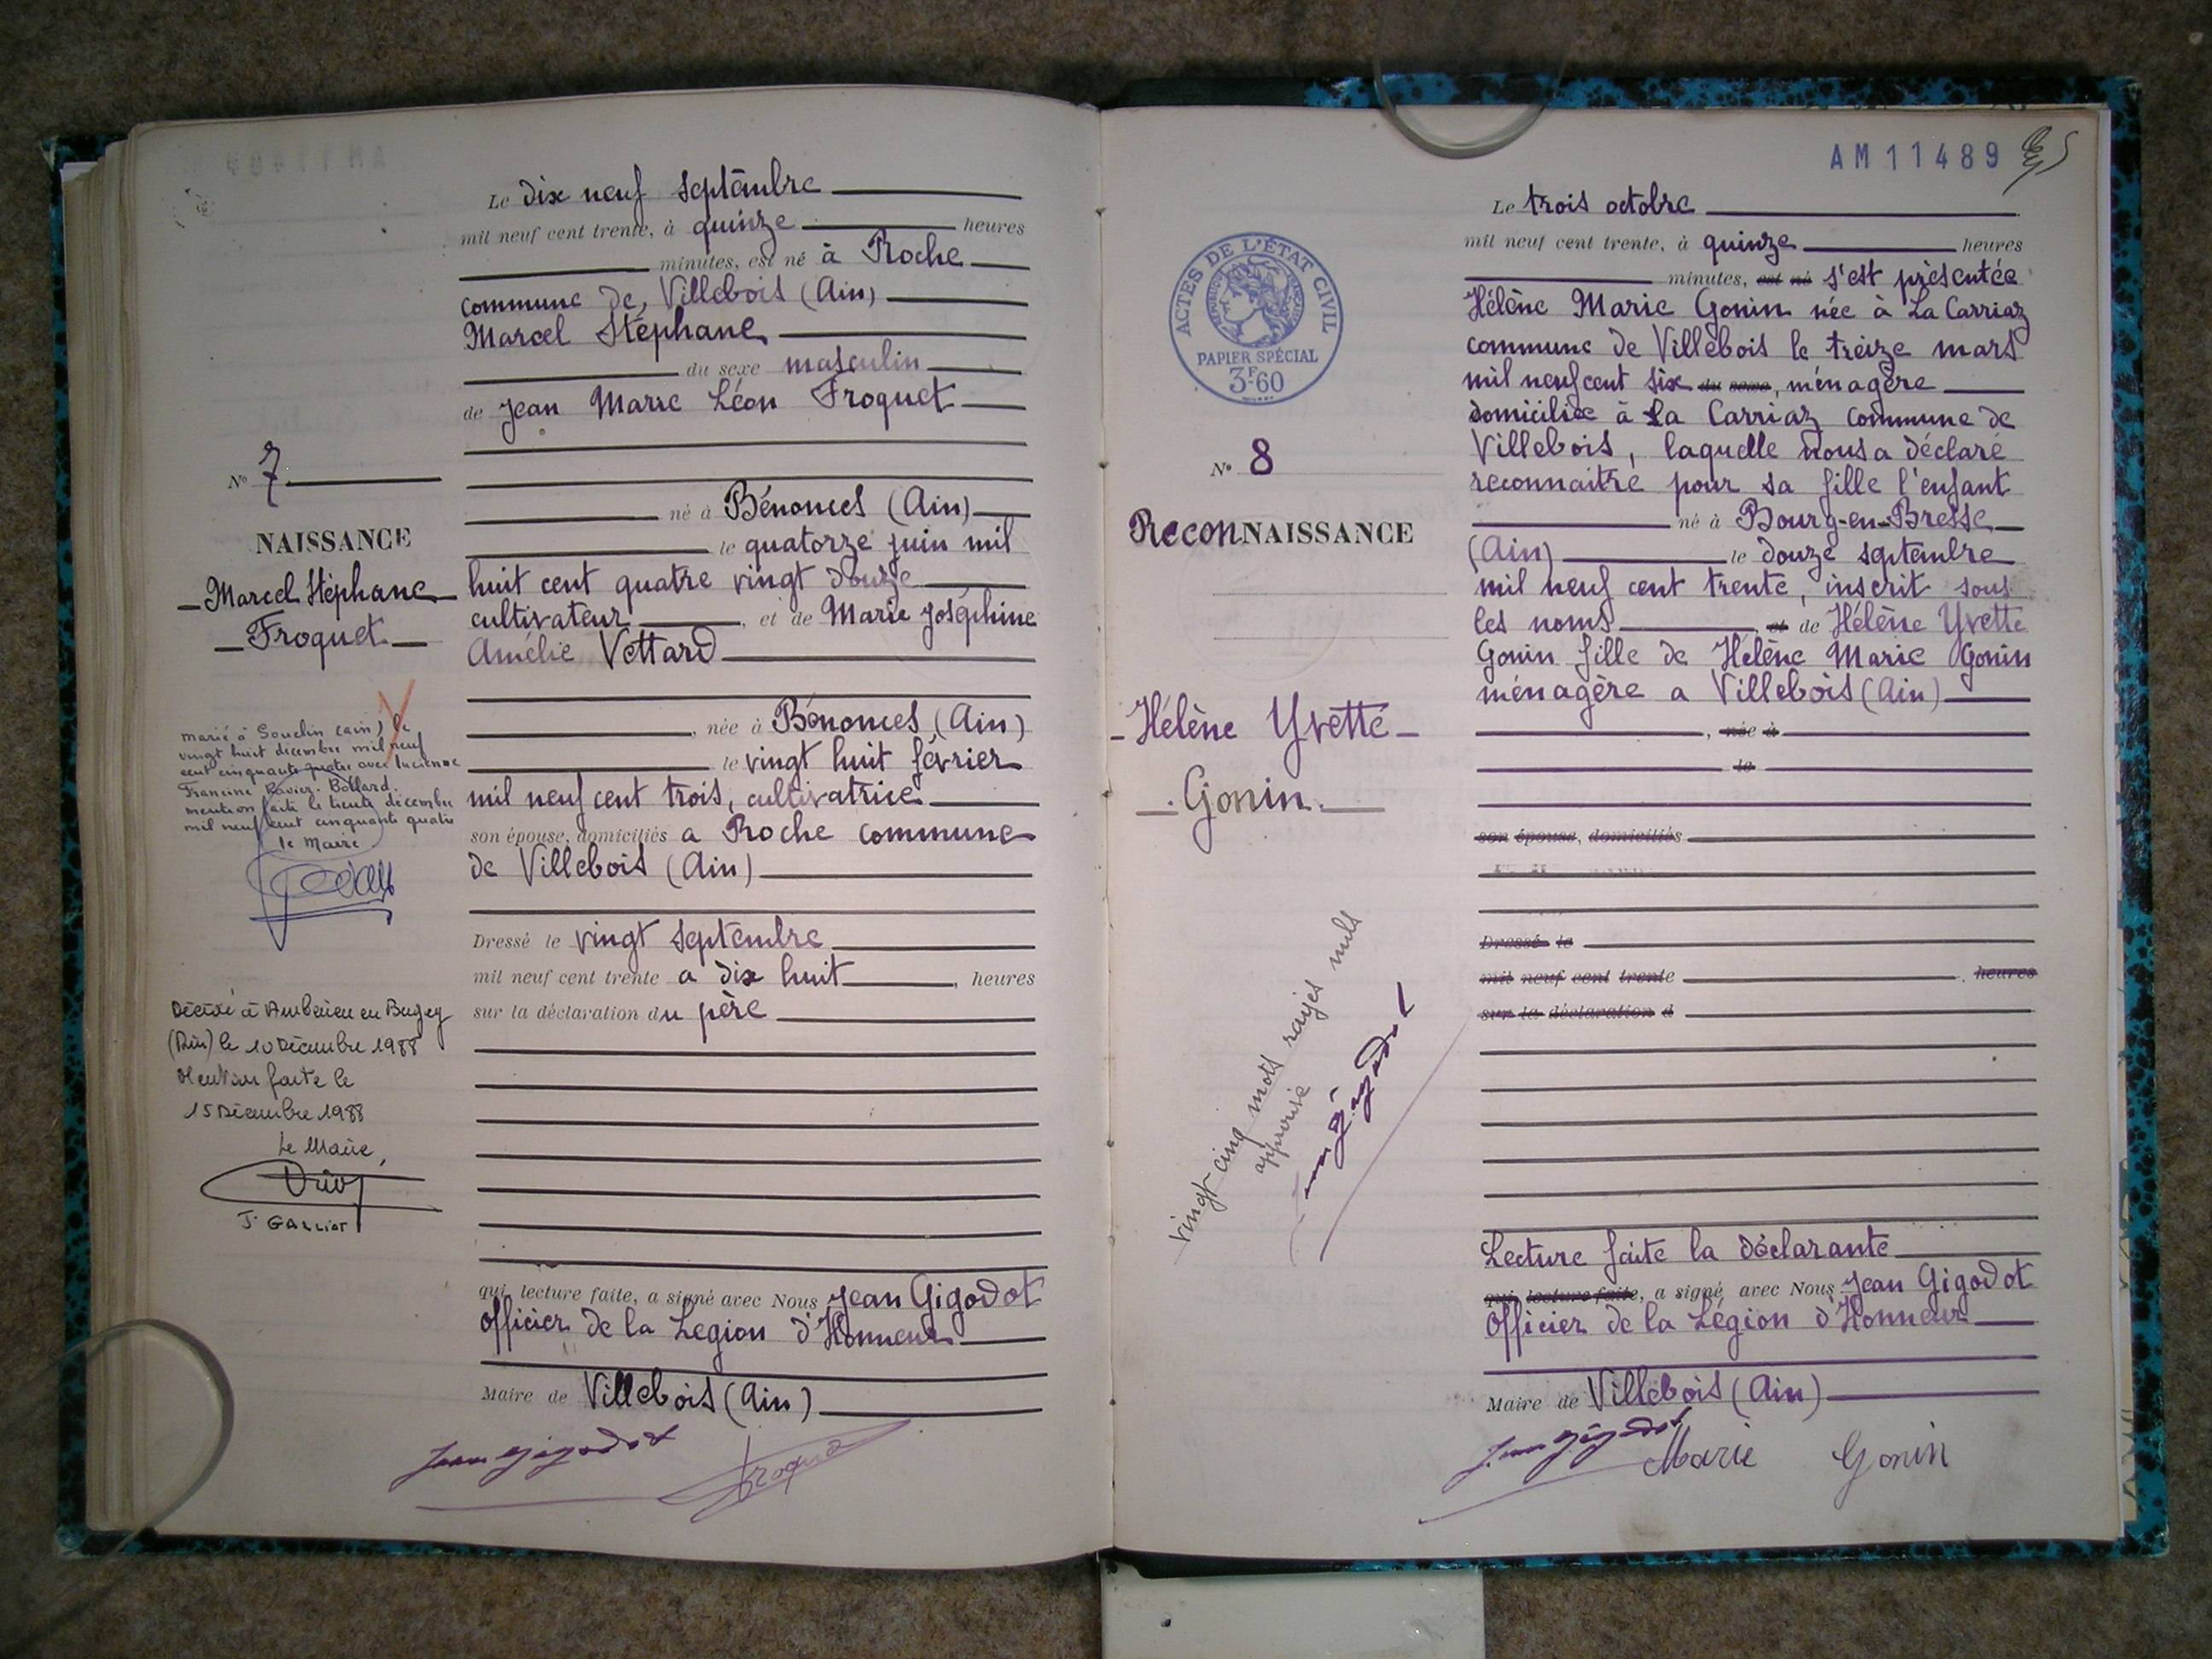 Le dix neuf septembre
mil neuf cent trente, à quinze heures
minutes, est né à Roche
commune de Villebois (Ain)
Marcel Stéphane
du sexe masculin
de Jean Marie Léon Froquet
né à Bénonces (Ain)
le quatorze juin mil
huit cent quatre vingt douze
cultivateur, et de Marie Joséphine
Amélie Vettard
, née à Bénonces (Ain)
le vingt huit février
mil neuf cent trois, cultivatrice
son épouse, domiciliés a Roche commune
de Villebois (Ain)
Dressé le vingt septembre
mil neuf cent trente a dix huit, heures
sur la déclaration du père
qui, lecture faite, a signé avec Nous Jean Gigodot
Officier de la Légion d'Honneur
Maire de Villebois (Ain)
Jean Gigodot Froquet
N° 7
NAISSANCE
Marcel Stéphane
Froquet
marié à Souclin (ain) le
vingt huit décembre mil neuf
cent cinquante quatre avec Lucienne
Francine Bollard.
mention faite le trente décembre
mil neuf cent cinquante quatre
le Maire
Décédé à Ambérieu en Bugey
(Ain) le 10 Décembre 1988
Mention faite le
15 Décembre 1988
Le Maire,
J. GALLIOT
AM 11489
ACTES DE L'ÉTAT CIVIL
PAPIER SPÉCIAL
3F60
N° 8
ReconNAISSANCE
Hélène Yvette
Gonin
vingt cinq mots rayés nuls
approuvé
Jean Gigodot
Le trois octobre
mil neuf cent trente, à quinze heures
minutes, est né s'est présentée
Hélène Marie Gonin née à La Carriaz
commune de Villebois le treize mars
mil neuf cent six du sexe, ménagère
domiciliée à La Carriaz commune de
Villebois, laquelle nous a déclaré
reconnaitre pour sa fille l'enfant
né à Bourg-en-Bresse
(Ain) le douze septembre
mil neuf cent trente, inscrit sous
les noms, et de Hélène Yvette
Gonin fille de Hélène Marie Gonin
ménagère a Villebois (Ain)
, née à
le
son épouse, domiciliés
Dressé le
mil neuf cent trente, heures
sur la déclaration d
Lecture faite la déclarante
qui lecture faite, a signé avec Nous Jean Gigodot
Officier de la Légion d'Honneur
Maire de Villebois (Ain)
Jean Gigodot Marie Gonin